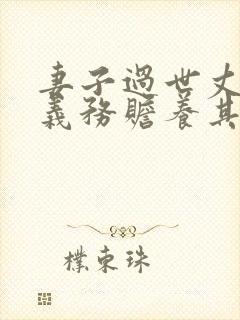 妻子過世丈
義務贍養其
樸東珠